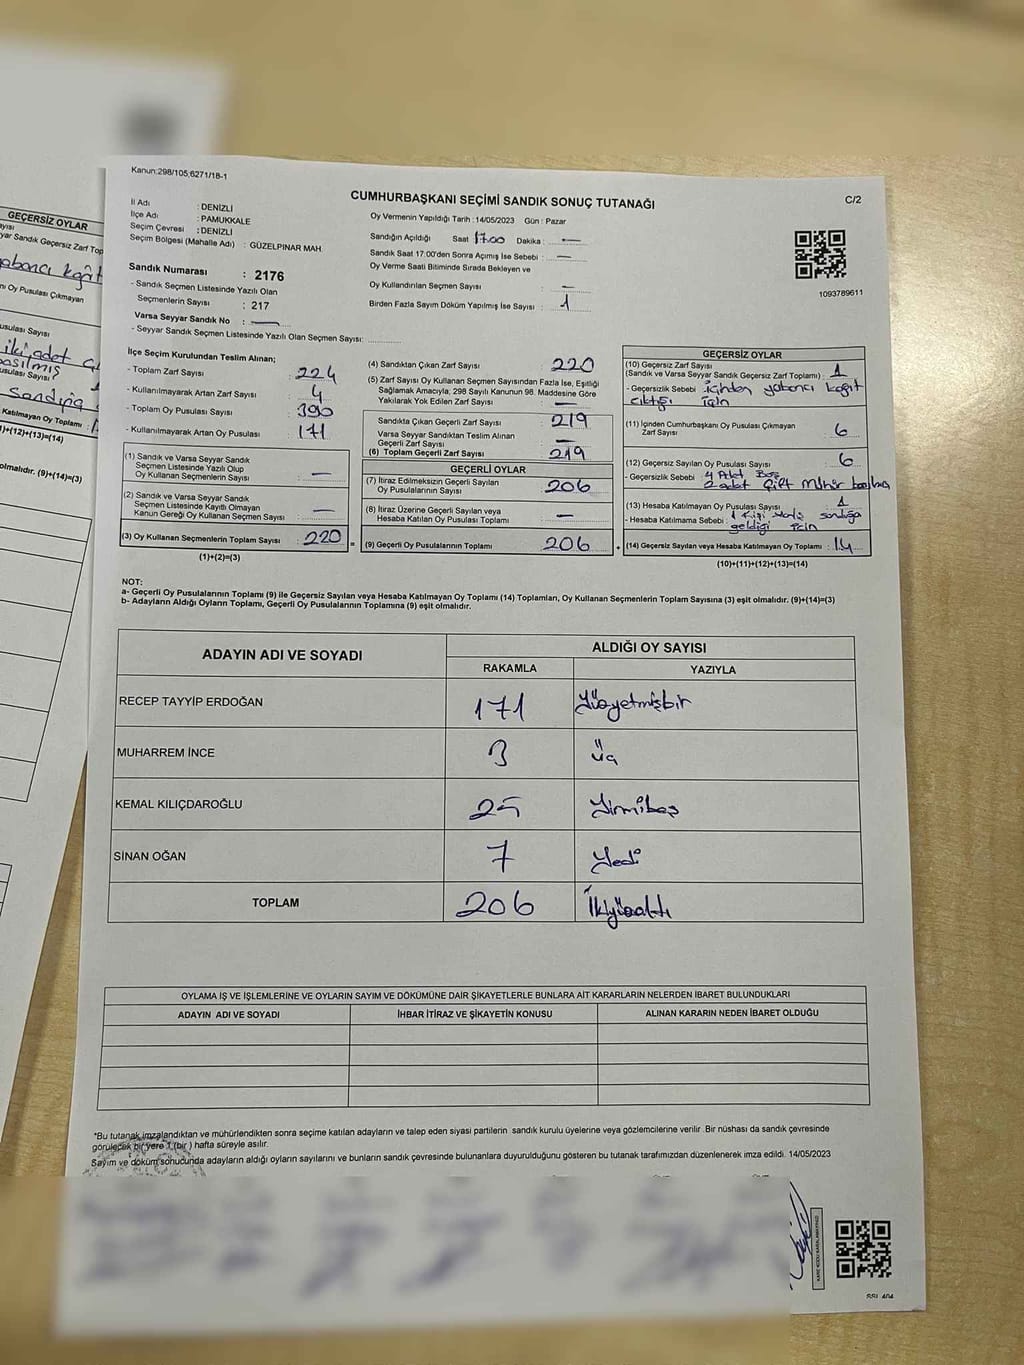 Kanun:298/105;6271/18-1
CUMHURBAŞKANI SEÇİMİ SANDIK SONUÇ TUTANAĞI
C/2
İl Adı : DENİZLİ
İlçe Adı : PAMUKKALE
Seçim Çevresi : DENİZLİ
Seçim Bölgesi (Mahalle Adı) : GÜZELPINAR MAH.
Sandık Numarası : 2176
- Sandık Seçmen Listesinde Yazılı Olan
Seçmenlerin Sayısı : 217
Varsa Seyyar Sandık No : —
- Seyyar Sandık Seçmen Listesinde Yazılı Olan Seçmen Sayısı:
Oy Vermenin Yapıldığı Tarih : 14/05/2023 Gün : Pazar
Sandığın Açıldığı Saat 17.00 Dakika : —
Sandık Saat 17:00'den Sonra Açımış İse Sebebi : —
Oy Verme Saati Bitiminde Sırada Bekleyen ve
Oy Kullandırılan Seçmen Sayısı : —
Birden Fazla Sayım Döküm Yapılmış İse Sayısı : 1
1093789611
İlçe Seçim Kurulundan Teslim Alınan;
- Toplam Zarf Sayısı : 224
- Kullanılmayarak Artan Zarf Sayısı : 4
- Toplam Oy Pusulası Sayısı : 390
- Kullanılmayarak Artan Oy Pusulası : 171
(1) Sandık ve Varsa Seyyar Sandık
Seçmen Listesinde Yazılı Olup
Oy Kullanan Seçmenlerin Sayısı : —
(2) Sandık ve Varsa Seyyar Sandık
Seçmen Listesinde Kayıtlı Olmayan
Kanun Gereği Oy Kullanan Seçmen Sayısı : —
(3) Oy Kullanan Seçmenlerin Toplam Sayısı : 220 =
(1)+(2)=(3)
(4) Sandıktan Çıkan Zarf Sayısı : 220
(5) Zarf Sayısı Oy Kullanan Seçmen Sayısından Fazla İse, Eşitliği
Sağlamak Amacıyla, 298 Sayılı Kanunun 98. Maddesine Göre
Yakılarak Yok Edilen Zarf Sayısı : —
Sandıkta Çıkan Geçerli Zarf Sayısı : 219
Varsa Seyyar Sandıktan Teslim Alınan
Geçerli Zarf Sayısı : —
(6) Toplam Geçerli Zarf Sayısı : 219
GEÇERLİ OYLAR
(7) İtiraz Edilmeksizin Geçerli Sayılan
Oy Pusulalarının Sayısı : 206
(8) İtiraz Üzerine Geçerli Sayılan veya
Hesaba Katılan Oy Pusulası Toplamı : —
(9) Geçerli Oy Pusulalarının Toplamı : 206 +
GEÇERSİZ OYLAR
(10) Geçersiz Zarf Sayısı
(Sandık ve Varsa Seyyar Sandık Geçersiz Zarf Toplamı) : 1
- Geçersizlik Sebebi : içinden yabancı kağıt
çıktığı için
(11) İçinden Cumhurbaşkanı Oy Pusulası Çıkmayan
Zarf Sayısı : 6
(12) Geçersiz Sayılan Oy Pusulası Sayısı : 6
- Geçersizlik Sebebi : 4 Adet Boş
2 adet Çift Mühür
(13) Hesaba Katılmayan Oy Pusulası Sayısı : 1
- Hesaba Katılmama Sebebi : 1 kişi yanlış sandığa
geldiği için
(14) Geçersiz Sayılan veya Hesaba Katılmayan Oy Toplamı : 14
(10)+(11)+(12)+(13)=(14)
NOT:
a- Geçerli Oy Pusulalarının Toplamı (9) ile Geçersiz Sayılan veya Hesaba Katılmayan Oy Toplamı (14) Toplamları, Oy Kullanan Seçmenlerin Toplam Sayısına (3) eşit olmalıdır. (9)+(14)=(3)
b- Adayların Aldığı Oyların Toplamı, Geçerli Oy Pusulalarının Toplamına (9) eşit olmalıdır.
ADAYIN ADI VE SOYADI
ALDIĞI OY SAYISI
RAKAMLA YAZIYLA
RECEP TAYYİP ERDOĞAN 171 Yüzyetmişbir
MUHARREM İNCE 3 Üç
KEMAL KILIÇDAROĞLU 25 Yirmibeş
SİNAN OĞAN 7 Yedi
TOPLAM 206 İkiyüzaltı
OYLAMA İŞ VE İŞLEMLERİNE VE OYLARIN SAYIM VE DÖKÜMÜNE DAİR ŞİKAYETLERLE BUNLARA AİT KARARLARIN NELERDEN İBARET BULUNDUKLARI
ADAYIN ADI VE SOYADI İHBAR İTİRAZ VE ŞİKAYETİN KONUSU ALINAN KARARIN NEDEN İBARET OLDUĞU
*Bu tutanak imzalandıktan ve mühürlendikten sonra seçime katılan adayların ve talep eden siyasi partilerin sandık kurulu üyelerine veya gözlemcilerine verilir .Bir nüshası da sandık çevresinde
görülecek bir yere 1 (bir ) hafta süreyle asılır.
Sayım ve döküm sonucunda adayların aldığı oyların sayılarını ve bunların sandık çevresinde bulunanlara duyurulduğunu gösteren bu tutanak tarafımızdan düzenlenerek imza edildi. 14/05/2023
GEÇERSİZ OYLAR
yar Sandık Geçersiz Zarf Top
yabancı kağıt
Oy Pusulası Çıkmayan
iki adet
basılmış
sandığa
Katılmayan Oy Toplamı
)+(12)+(13)=(14)
olmalıdır. (9)+(14)=(3)